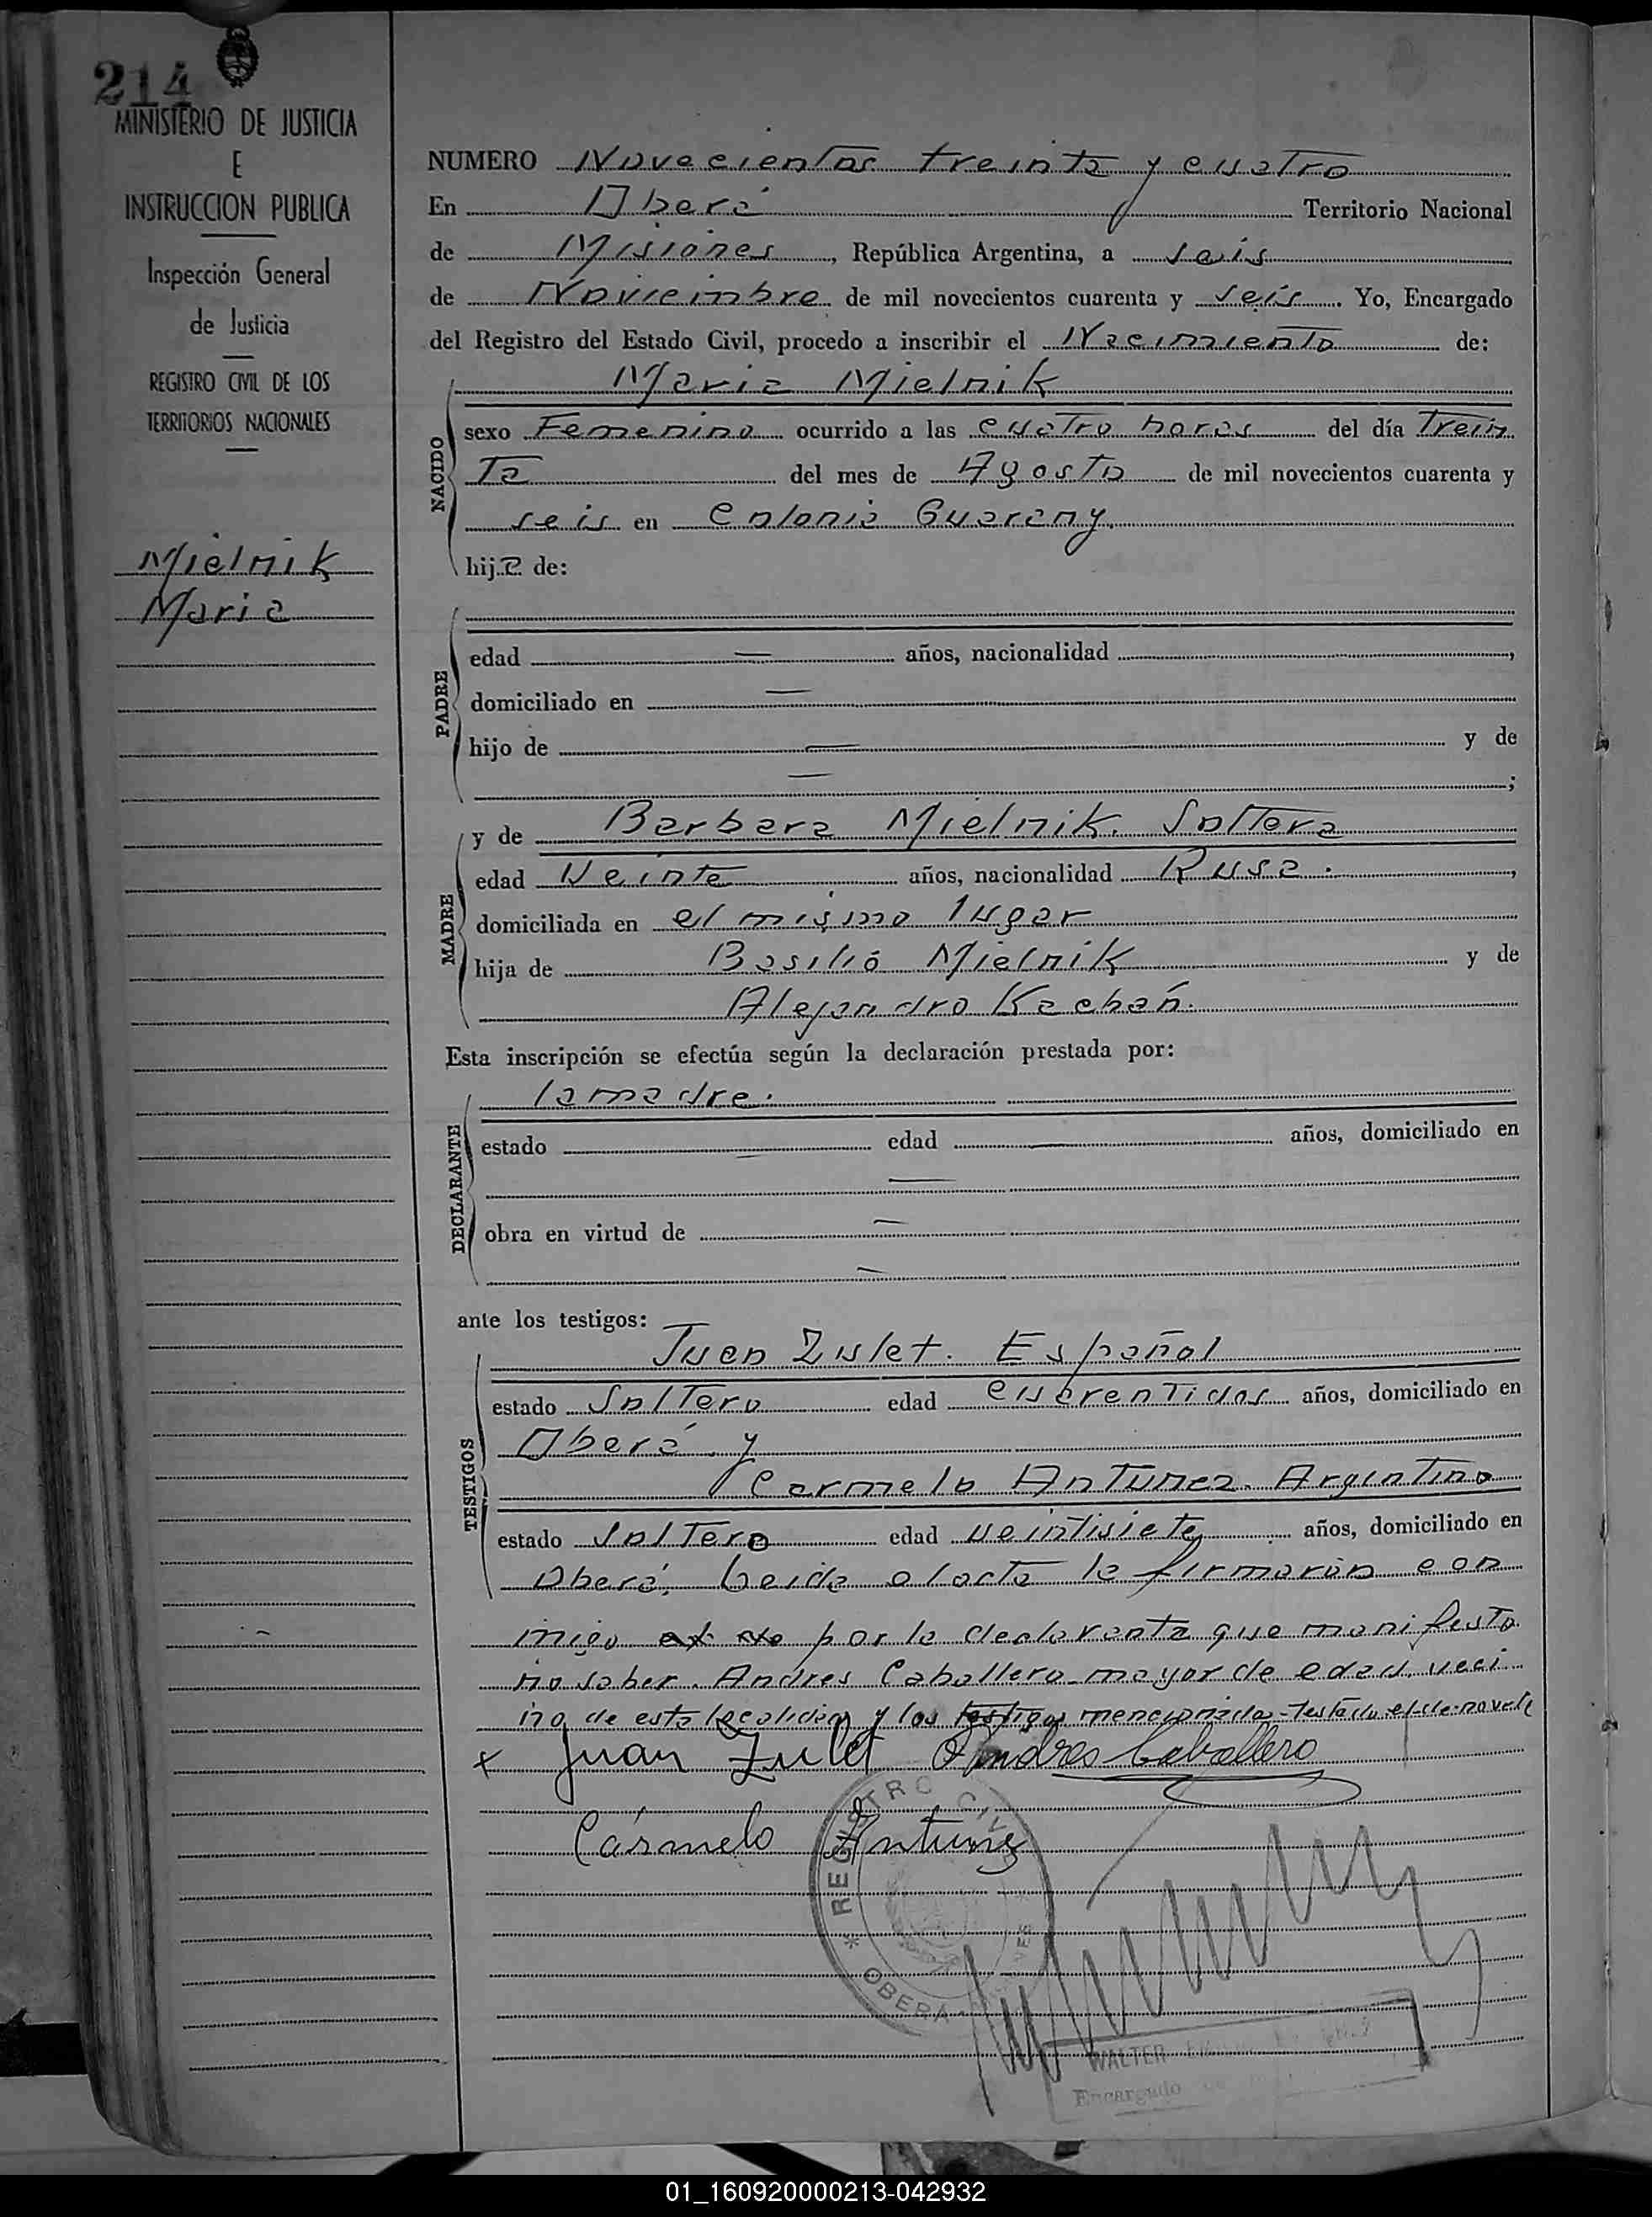 214
MINISTERIO DE JUSTICIA
E
INSTRUCCION PUBLICA
Inspección General
de Justicia
REGISTRO CIVIL DE LOS
TERRITORIOS NACIONALES
Mielnik
Maria
NUMERO Novecientos treinta y cuatro
En Oberá Territorio Nacional
de Misiones, República Argentina, a seis
de Noviembre de mil novecientos cuarenta y seis. Yo, Encargado
del Registro del Estado Civil, procedo a inscribir el Nacimiento de:
Maria Mielnik
NACIDO
sexo Femenino ocurrido a las cuatro horas del día Trein
Ta del mes de Agosto de mil novecientos cuarenta y
seis en Colonia Guarany.
hija de:
PADRE
edad — años, nacionalidad ,
domiciliado en —
hijo de — y de
— ;
MADRE
y de Barbara Mielnik. Soltera
edad Veinte años, nacionalidad Rusa. ,
domiciliada en el mismo lugar
hija de Basilio Mielnik y de
Alejandro Kachan.
Esta inscripción se efectúa según la declaración prestada por:
DECLARANTE
la madre.
estado — edad — años, domiciliado en
—
obra en virtud de —
—
ante los testigos:
TESTIGOS
Juan Zulet. Español
estado Soltero edad cuarentidos años, domiciliado en
Oberá y
Carmelo Antunez. Argentino
estado Soltero edad veintisiete años, domiciliado en
Oberá. Leida el acta la firmarón con
migo por la declaranta que manifesto
no saber. Andres Caballero mayor de edad, veci
no de esta localidad y los testigos mencionados-Testado el-de-no vale
x Juan Zulet Andres Caballero
Cármelo Antunez
* REGISTRO CIVIL
OBERÁ
WALTER
Encargado
01_160920000213-042932